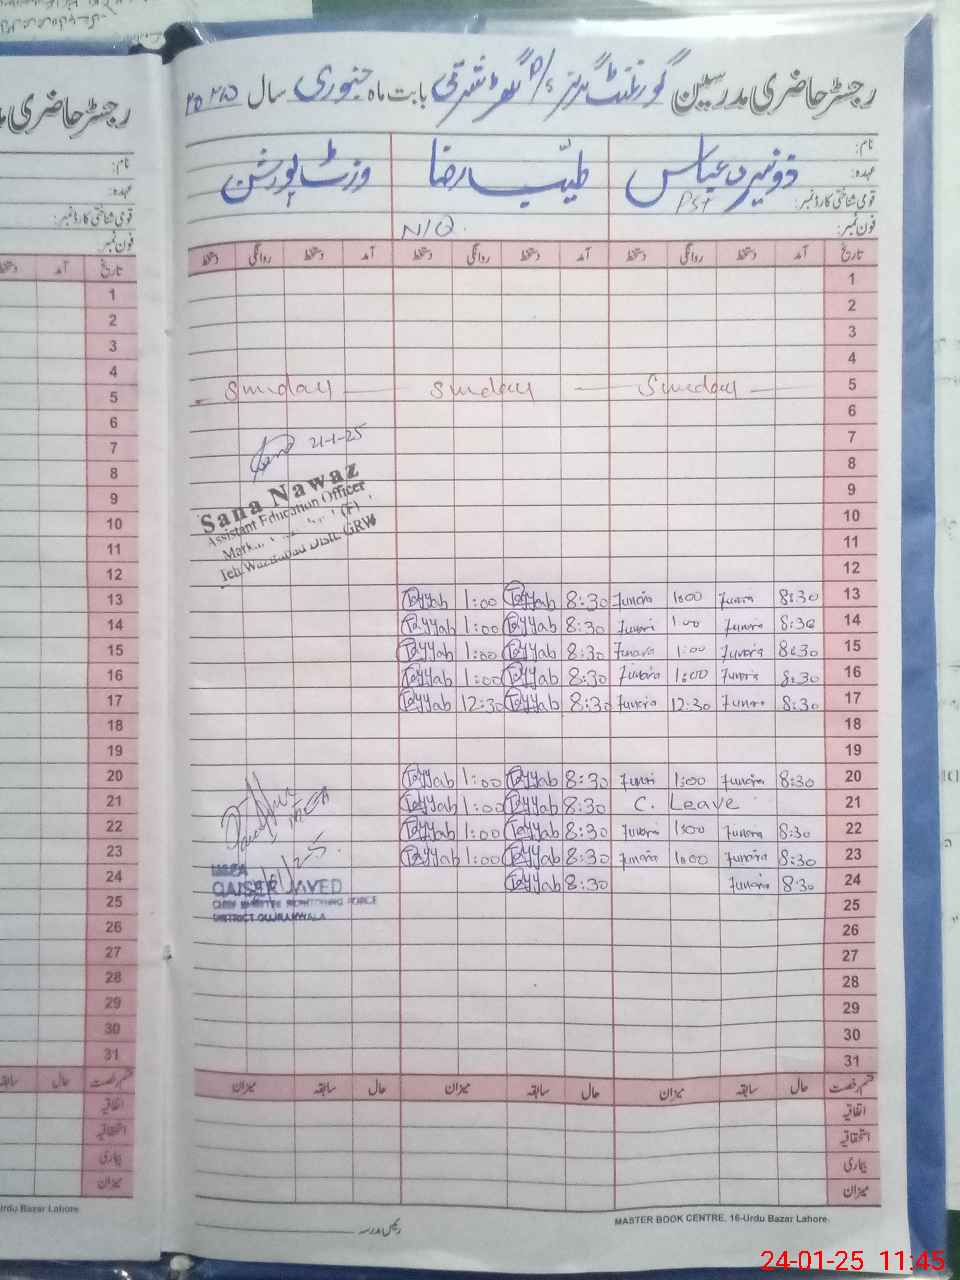 رجسٹر حاضری مدرسین گورنمنٹ گرلز بابت ماہ جنوری سال ۲۰۲۵
نام:
زونیرہ عباس طیب رضا وزٹ پورشن
عہدہ:
PST
قومی شناختی کارڈ نمبر:
فون نمبر:
N/Q
تاریخ آمد دستخط روانگی دستخط آمد دستخط روانگی دستخط آمد دستخط روانگی دستخط
1
2
3
4
5 Sunday Sunday Sunday
6
7
21-1-25
8
9
Sana Nawaz
10
Assistant Education Officer
11
(F)
12
Distt. GRW
13 8:30 Junaira 1:00 Junaira 8:30 Tayyab 1:00 Tayyab
14 8:30 Junaira 1:00 Junaira 8:30 Tayyab 1:00 Tayyab
15 8:30 Junaira 1:00 Junaira 8:30 Tayyab 1:00 Tayyab
16 8:30 Junaira 1:00 Junaira 8:30 Tayyab 1:00 Tayyab
17 8:30 Junaira 12:30 Junaira 8:30 Tayyab 12:30 Tayyab
18
19
20 8:30 Junaira 1:00 Junaira 8:30 Tayyab 1:00 Tayyab
21 C. Leave 8:30 Tayyab 1:00 Tayyab
22 8:30 Junaira 1:00 Junaira 8:30 Tayyab 1:00 Tayyab
23 8:30 Junaira 1:00 Junaira 8:30 Tayyab 1:00 Tayyab
24 8:30 Junaira 8:30 Tayyab
MEA
QAISER JAVED
CHIEF MINISTER MONITORING FORCE
DISTRICT GUJRANWALA
25
26
27
28
29
30
31
قسم رخصت حال سابقہ میزان حال سابقہ میزان حال سابقہ میزان
اتفاقیہ
استحقاقیہ
بیماری
میزان
MASTER BOOK CENTRE, 16-Urdu Bazar Lahore.
رئیس مدرسہ
رجسٹر حاضری
نام:
عہدہ:
قومی شناختی کارڈ نمبر:
فون نمبر:
تاریخ آمد
1
2
3
4
5
6
7
8
9
10
11
12
13
14
15
16
17
18
19
20
21
22
23
24
25
26
27
28
29
30
31
قسم رخصت حال سابقہ
اتفاقیہ
استحقاقیہ
بیماری
میزان
Urdu Bazar Lahore.
24-01-25 11:45